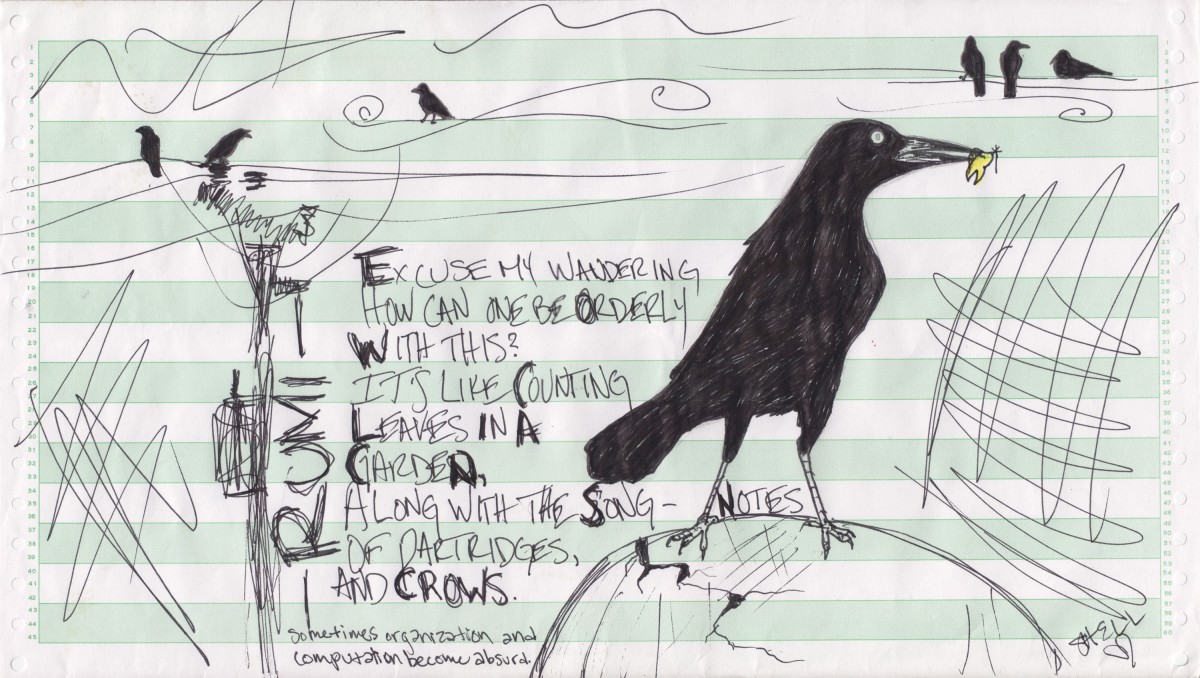 EXCUSE MY WANDERING
HOW CAN ONE BE ORDERLY
WITH THIS?
IT'S LIKE COUNTING
LEAVES IN A
GARDEN,
ALONG WITH THE SONG - NOTES
OF PARTRIDGES,
AND CROWS.
— RUMI —
sometimes organization and
computation become absurd.